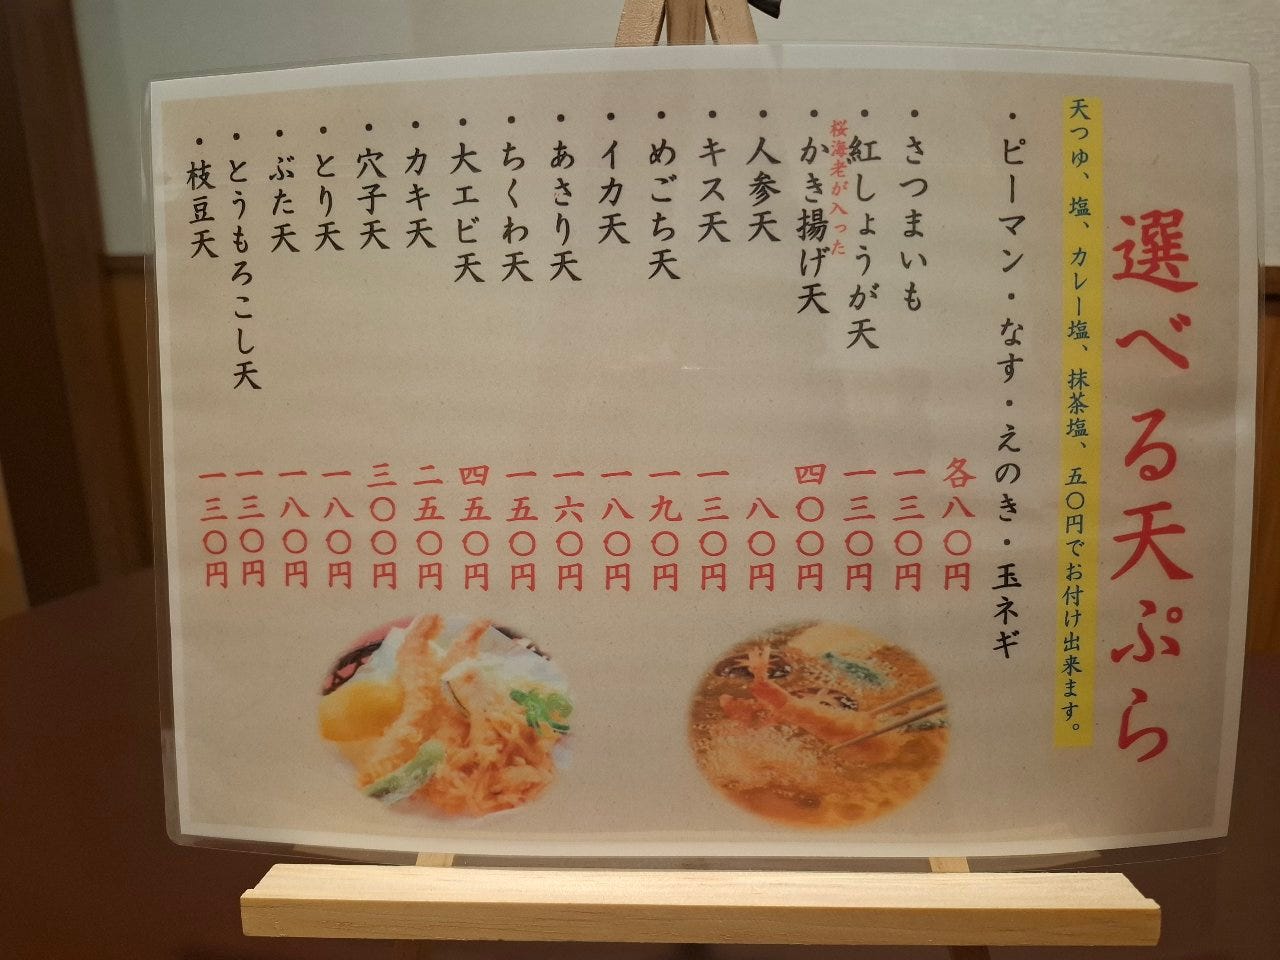 選べる天ぷら
天つゆ、塩、カレー塩、抹茶塩、五〇円でお付け出来ます。
・ピーマン・なす・えのき・玉ネギ
各八〇円
・さつまいも 一三〇円
・紅しょうが天 一三〇円
桜海老が入った
・かき揚げ天 四〇〇円
・人参天 八〇円
・キス天 一三〇円
・めごち天 一九〇円
・イカ天 一八〇円
・あさり天 一六〇円
・ちくわ天 一五〇円
・大エビ天 四五〇円
・カキ天 二五〇円
・穴子天 三〇〇円
・とり天 一八〇円
・ぶた天 一八〇円
・とうもろこし天 一三〇円
・枝豆天 一三〇円